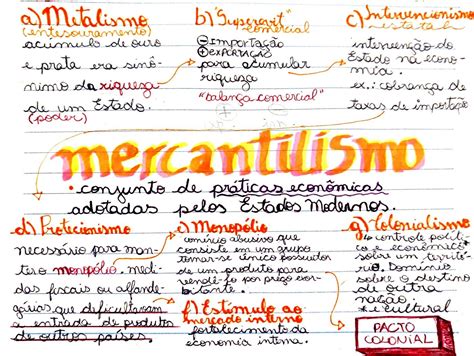 a) Metalismo
(entesouramento)
acúmulo de ouro
e prata era sinô-
nimo da riqueza
de um Estado.
(poder)
b) "Superavit"
comercial
⊖ Importação
⊕ exportação
para acumular
riqueza
"balança comercial"
+ -
c) Intervencionismo
estatal
intervenção do
Estado na econo-
mia.
ex.: cobrança de
taxas de importaçõe
mercantilismo
• conjunto de práticas econômicas
adotadas pelos Estados Modernos.
d) Protecionismo
necessário para man-
ter o monopólio. medi-
das fiscais ou alfande-
gárias, que dificultavam
a entrada de produtos
de outros países.
e) Monopólio
comércio abusivo que
consiste em um grupo
tornar-se único possuidor
de um produto para
vendê-lo por preço exor-
bitante.
f) Estímulo ao
mercado interno
fortalecimento da
economia interna.
g) Colonialismo
controle políti-
co e econômico
sobre um territó-
rio. Domínio
sobre o destino
de outra
nação.
e cultural
PACTO
COLONIAL